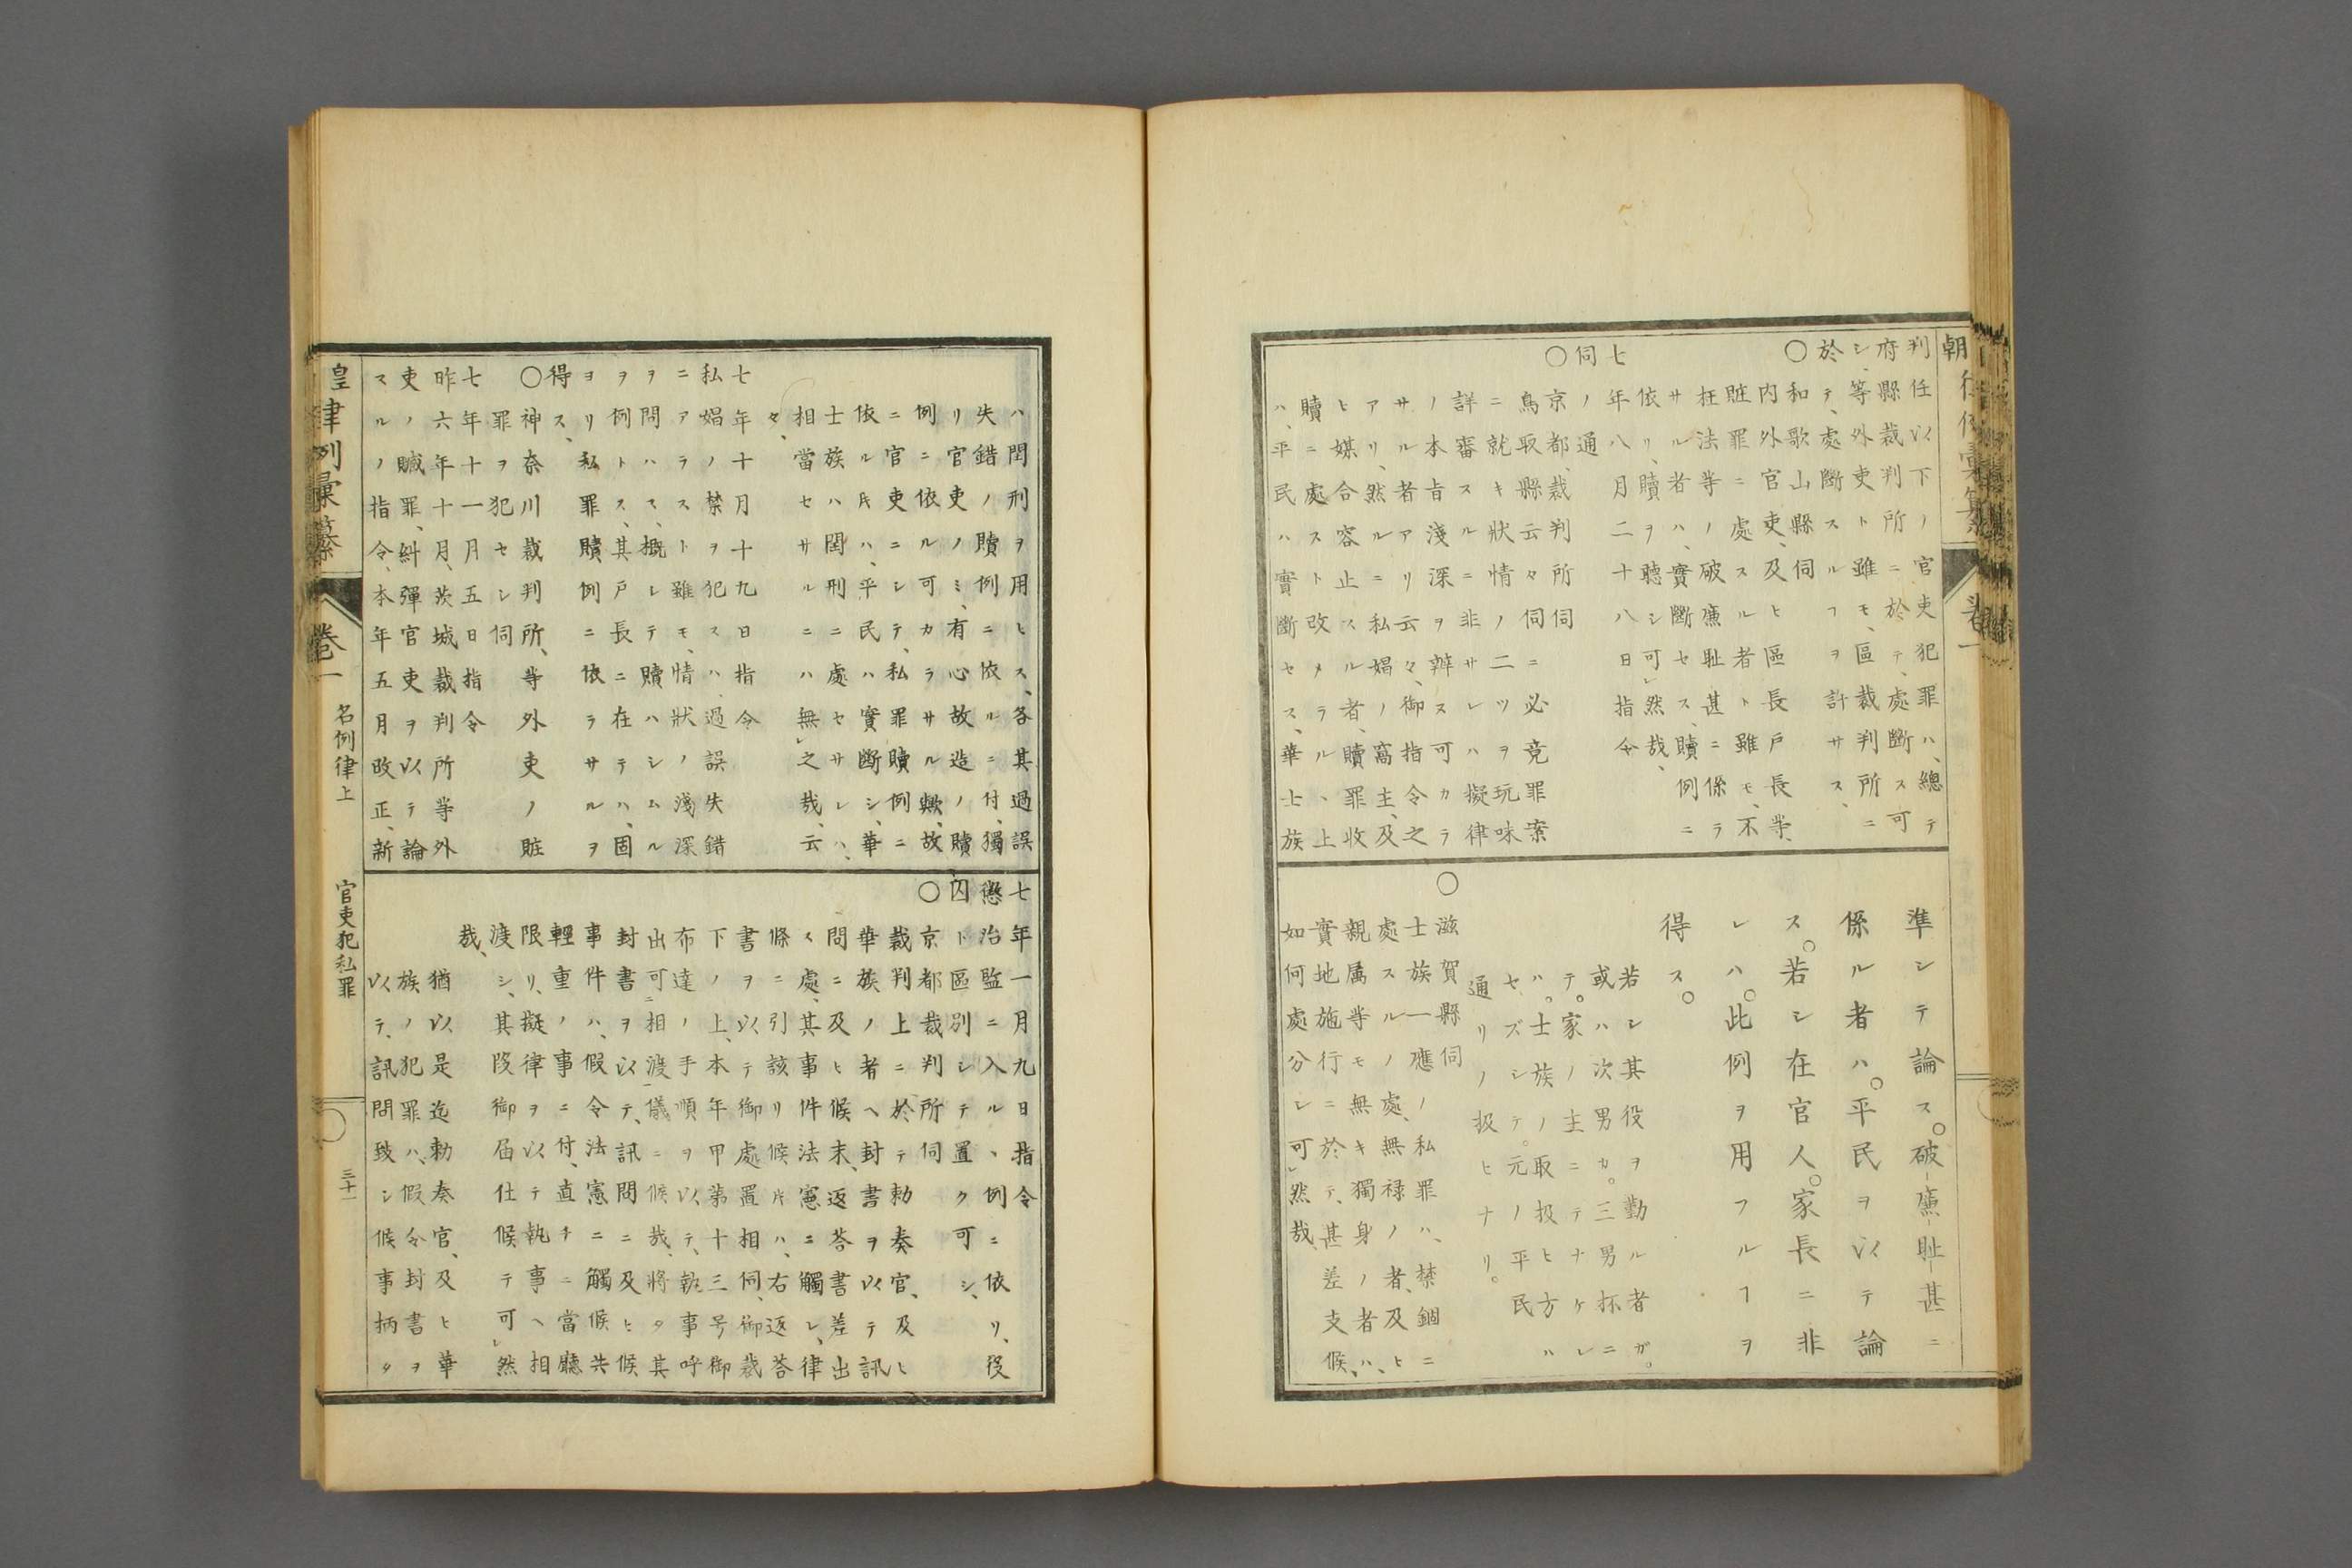 判任以下ノ官吏犯罪ハ、總テ
府縣裁判所ニ於テ、處斷ス可
シ、等外吏ト雖モ、區裁判所ニ
於テ、處斷スルヿヲ許サス、
○和歌山縣伺
内外官吏、及ヒ區長戸長等、
賍罪ニ處スル者ト雖モ、不
枉法等ノ破廉耻甚ニ係ラ
サル者ハ、實斷セス、贖例ニ
依リ、贖ヲ聽シ可然哉、
七年八月二十八日指令
伺ノ通
○京都裁判所伺
鳥取縣云々伺ニ必竟罪案
ニ就キ狀情ノ二ツヲ玩味
詳審スルニ非サレハ擬律
ノ本旨淺深ヲ辨ス可カラ
サル者アリ云々、御指令之
アリ、然ルニ私娼ノ窩主、及
ヒ媒合容止スル者、贖罪收
贖ニ處スト改メラル丶上
ハ、平民ハ實斷セス、華士族
準シテ論ス。破廉耻甚ニ
係ル者ハ。平民ヲ以テ論
ス。若シ在官人。家長ニ非
レハ。此例ヲ用フルヿヲ
得ス。
若シ其役ヲ勤ル者ガ。
或ハ次男カ。三男抔ニ
テ。家ノ主ニテナケレ
ハ。士族ノ取扱ヒ方ハ
セズシテ。元ノ平民
通リノ扱ヒナリ。
○滋賀縣伺
士族一應ノ私罪ハ、禁錮ニ
處スルノ處、無禄ノ者、及ヒ
親属等モ無キ獨身ノ者ハ、
實地施行ニ於テ、甚差支候、
如何處分シ可然哉、
ハ閏刑ヲ用ヒス、各其過誤
失錯ノ贖例ニ依ルニ付、獨
リ官吏ノミ、有心故造ノ贖
例ニ依ル可カラサル歟、故
ニ官吏ニシテ、私罪贖例ニ
依ル氏ハ、平民ハ實斷シ、華
士族ハ閏刑ニ處セサレハ、
相當セサルニハ無之哉、云
々、
七年十月十九日指令
私娼ノ禁ヲ犯スハ、過誤失錯
ニアラスト雖モ、情狀ノ淺深
ヲ問ハス、概シテ贖ハシムル
ヲ例トス、其戸長ニ在テハ、固
ヨリ私罪贖例ニ依ラサルヲ
得ス、
○神奈川裁判所、等外吏ノ賍
罪ヲ犯セシ伺
七年十一月五日指令
昨六年十月、茨城裁判所等外
吏ノ贓罪、糾彈官吏ヲ以テ論
スルノ指令、本年五月改正、新
七年一月九日指令
懲治監ニ入ル丶例ニ依リ、役
囚ト區別シテ置ク可シ、
○京都裁判所伺
裁判上ニ於テ勅奏官、及ヒ
華族ノ者ヘ封書ヲ以テ訊
問ニ及ヒ候末、返答書差出
々處、其事件法憲ニ觸レ、律
條ニ引該リ候片ハ、右返答
書ヲ以テ御處置相伺、御裁
下ノ上、本年甲第十三号御
布達ノ手順ヲ以テ、執事呼
出可相渡儀ニ候哉、將タ其
封書ヲ以テ、訊問ニ及ヒ候
事件ハ、假令法憲ニ觸候共
輕重ノ事ニ付、直チニ當廳
限リ、擬律ヲ以テ執事ヘ相
渡シ、其段御届仕候テ可然
哉、
猶以是迄勅奏官、及ヒ華
族ノ犯罪ハ、假令封書ヲ
以テ、訊問致シ候事柄タ
皇律例彙纂 卷一 名例律上 官吏犯私罪 三十一